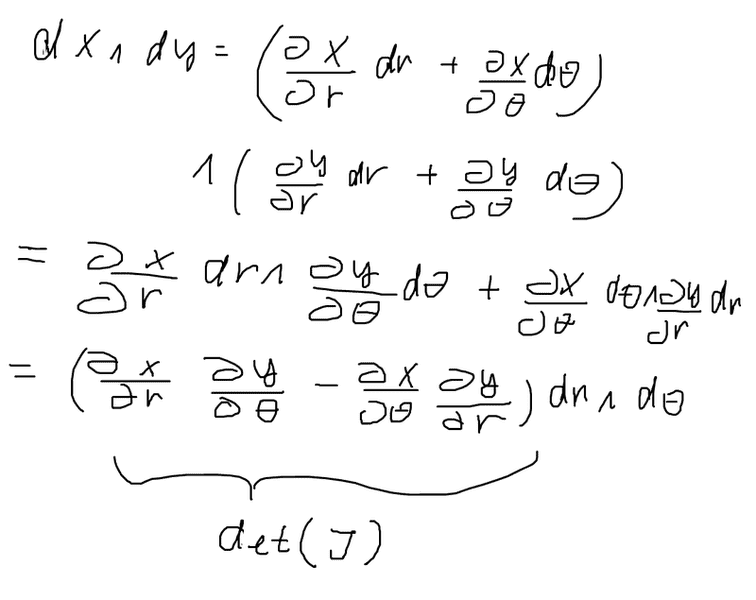 dx ∧ dy = (∂x/∂r dr + ∂x/∂θ dθ)
∧ (∂y/∂r dr + ∂y/∂θ dθ)
= ∂x/∂r dr ∧ ∂y/∂θ dθ + ∂x/∂θ dθ ∧ ∂y/∂r dr
= (∂x/∂r ∂y/∂θ − ∂x/∂θ ∂y/∂r) dr ∧ dθ
det(J)